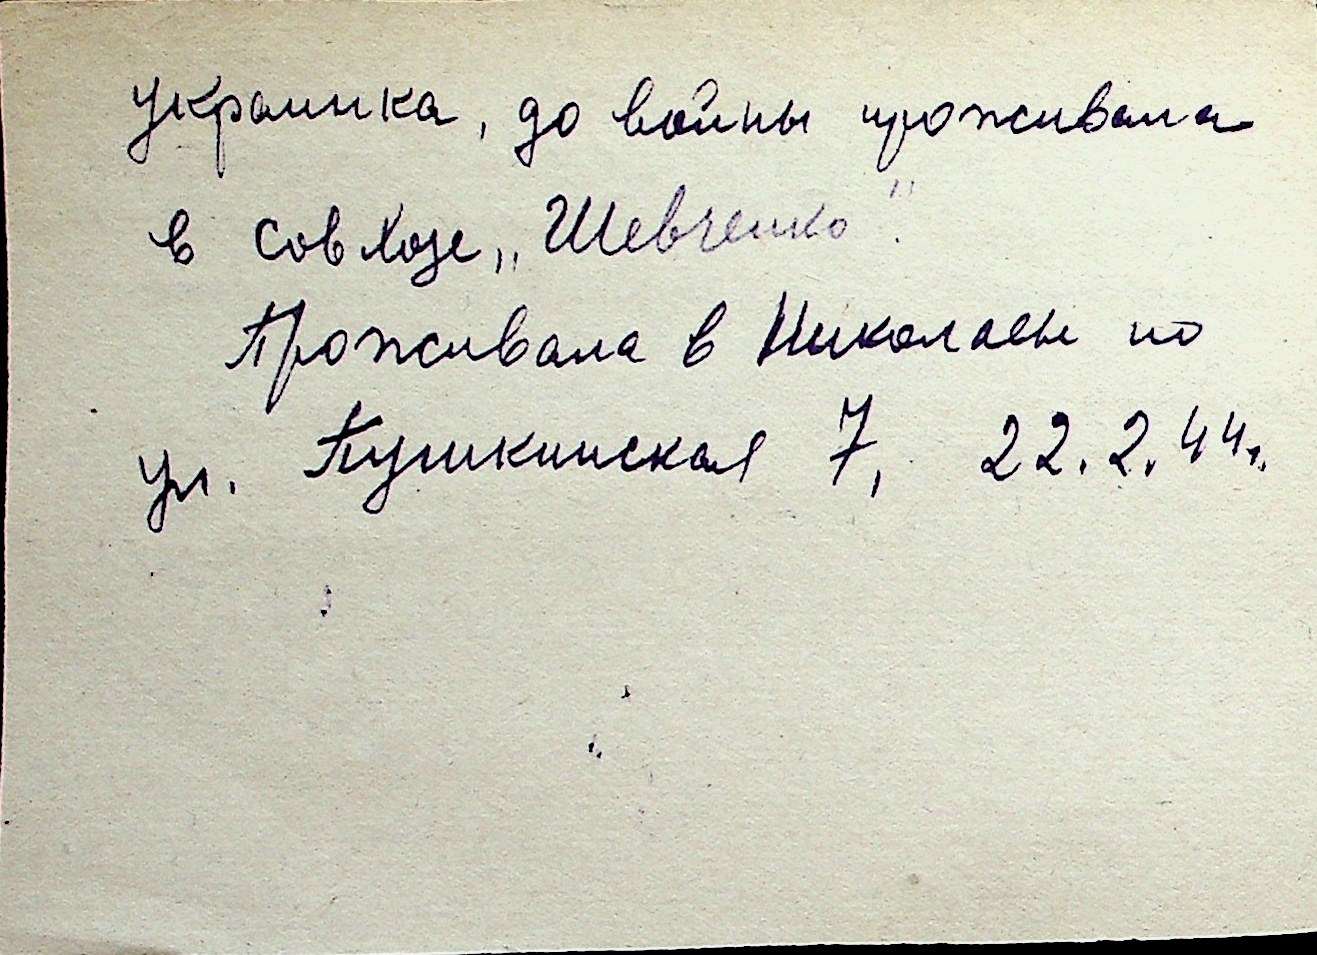 украинка, до войны проживала
в совхозе „Шевченко".
Проживала в Николаеве по
ул. Пушкинская 7, 22.2.44г.